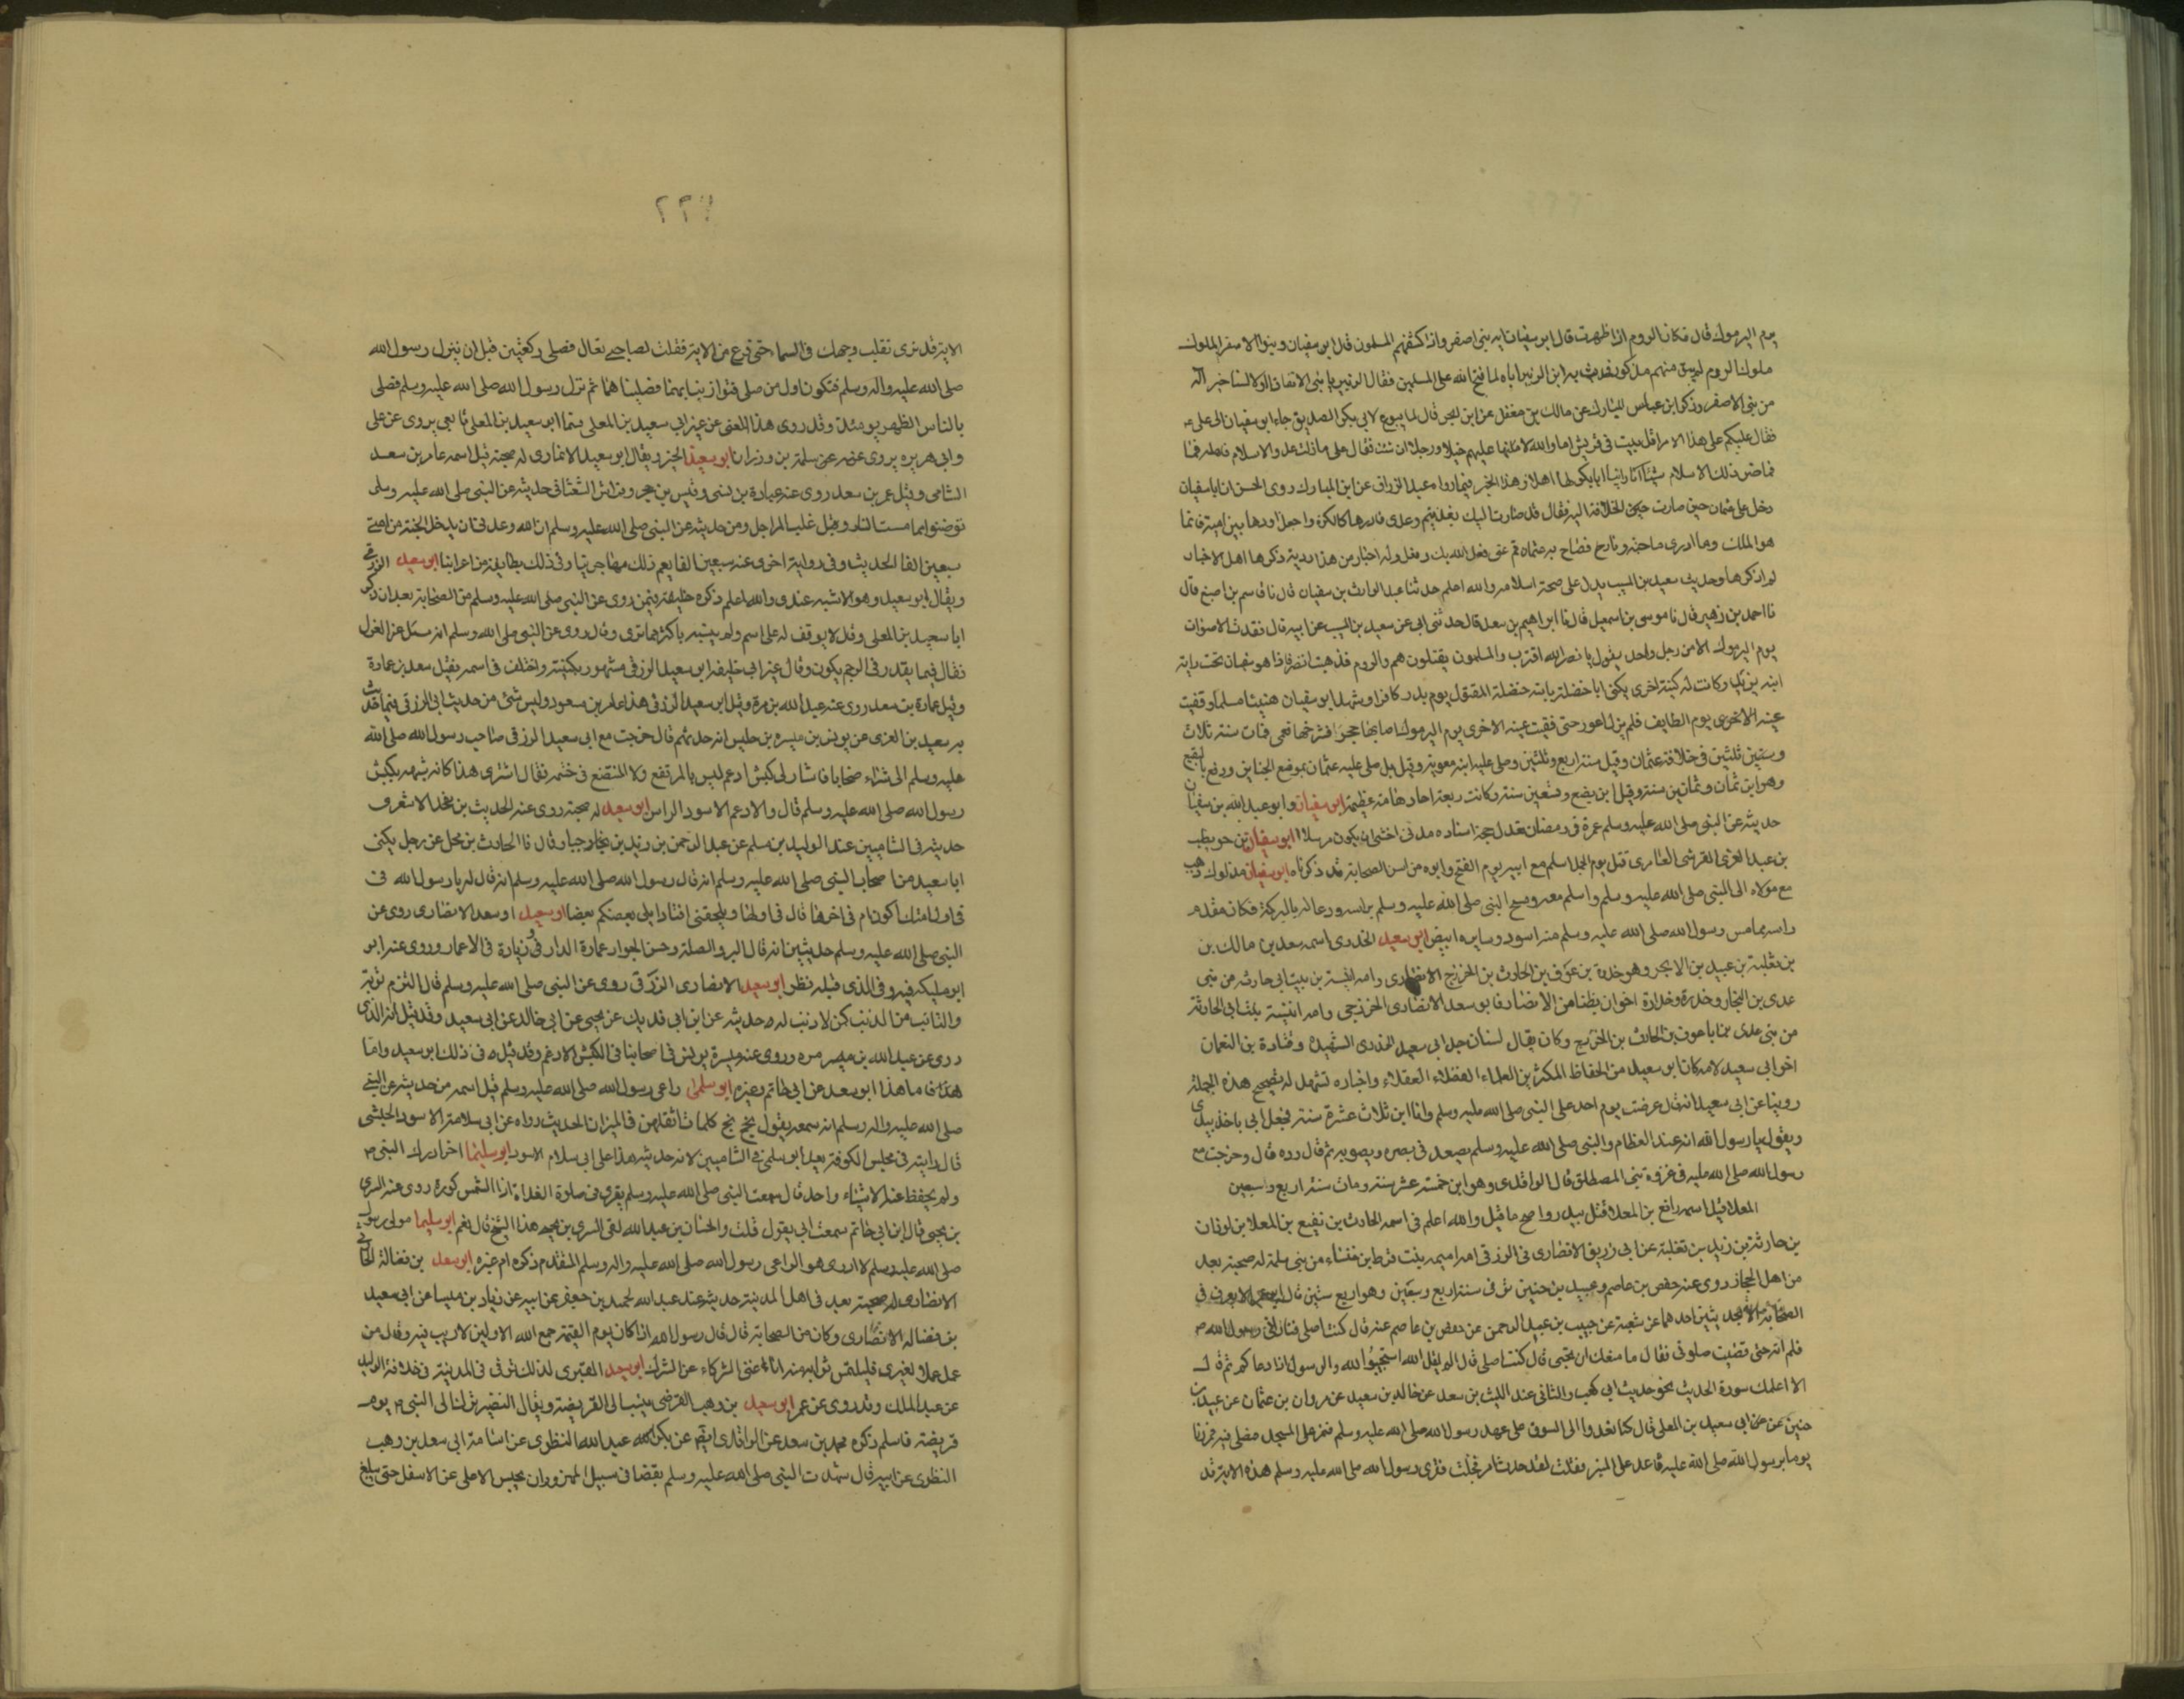 يوم اليرموك قال فكان الروم اذا ظهرت قال ابو سفيان ايه بني اصفر واذا كشفهم المسلمون قال ابو سفيان وبنو الاصفر الملوك
ملوك الروم لم يبق منهم مذكور فحدث به ابن الزبير اباه لما فتح الله على المسلمين فقال الزبير
من بني الاصفر وذكر ابن المبارك عن مالك بن مغول عن ابن ابجر قال لما بويع لابي بكر الصديق جاء ابو سفيان الى علي
فقال عليكم على هذا الامر اقل بيت في قريش اما والله لاملانها عليهم خيلا ورجلا ان شئت فقال علي ما زلت عدو الاسلام واهله
فما ضر ذلك الاسلام شيئا انا راينا ابا بكر لها اهلا وهذا الخبر فيما رواه عبد الرزاق عن ابن المبارك روى الحسن ان ابا سفيان
دخل على عثمان حين صارت الخلافة اليه فقال قد صارت اليك بعد تيم وعدي فادرها كالكرة واجعل اوتادها بني امية فانما
هو الملك وما ادري ما جنة ولا نار فصاح به عثمان قم عني فعل الله بك وفعل وله اخبار من هذا ردية ذكرها اهل الاخبار
لم اذكرها وحديث سعيد بن المسيب يدل على صحة اسلامه والله اعلم حدثنا عبد الوارث بن سفيان قال نا قاسم بن اصبغ قال
نا احمد بن زهير قال نا موسى بن اسمعيل قال نا ابراهيم بن سعد قال حدثني ابي عن سعيد بن المسيب عن ابيه قال فقدت الاصوات
يوم اليرموك الا من رجل واحد يقول يا نصر الله اقترب والمسلمون يقتلون هم والروم فذهبت انظر فاذا هو ابو سفيان تحت راية
ابنه يزيد وكانت له كنية اخرى يكنى ابا حنظلة بابنه حنظلة المقتول يوم بدر كافرا وشهد ابو سفيان حنينا مسلما وفقئت
عينه الاخرى يوم الطايف فلم يزل اعور حتى فقئت عينه الاخرى يوم اليرموك اصابها حجر فشدخها فعمي فمات سنة ثلاث
وستين ثلثين في خلافة عثمان وقيل سنة اربع وثلثين وصلى عليه ابنه معوية وقيل بل صلى عليه عثمان بموضع الجنايز ودفع بالبقيع
وهو ابن ثمان وثمانين سنة وقيل ابن بضع وتسعين سنة وكانت ربعة احدها منه عظيمة ابو سفيان وابو عبد الله بن سفيان
حديثه عن النبي صلى الله عليه وسلم عمرة في رمضان تعدل حجة اسناده مدني اخشى ان يكون مرسلا ابو سفيان بن حويطب
بن عبد العزى القرشي العامري قتل يوم الجمل اسلم مع ابيه يوم الفتح وابوه من اسن الصحابة قد ذكرناه ابو سفيان مدلوك ذهب
مع مولاه الى النبي صلى الله عليه وسلم واسلم معه ومسح النبي صلى الله عليه وسلم براسه ودعا له بالبركة فكان مقدم
راسه ما مس رسول الله صلى الله عليه وسلم منه اسود وسايره ابيض ابو سعيد الخدري اسمه سعد بن مالك بن
بن ثعلبة بن عبيد بن الابجر وهو خدرة بن عوف بن الحارث بن الخزرج الانصاري وامه انيسة بنت ابي حارثه من بني
عدي بن النجار وخدرة وخدارة اخوان بطنا من الانصار فابو سعد الانصاري الخزرجي وامه انيسة بنت ابي الحارثة
من بني عدي بن الحارث بن الخزرج وكان يقال لسنان جد ابي سعيد الخدري الشهيد وقتادة بن النعمان
اخو ابي سعيد لامه كان ابو سعيد من الحفاظ المكثرين العلماء الفضلاء العقلاء واخباره تشهد له بتصحيح هذه الجملة
روينا عن ابي سعيد انه قال عرضت يوم احد على النبي صلى الله عليه وسلم وانا ابن ثلاث عشرة سنة فجعل ابي ياخذ بيدي
ويقول يا رسول الله انه عبد العظام والنبي صلى الله عليه وسلم يصعد في بصره ويصوبه ثم قال رده قال وخرجت مع
رسول الله صلى الله عليه في غزوة بني المصطلق قال الواقدي وهو ابن خمسة عشر سنة ومات سنة اربع وسبعين
المعلا قيل اسمه رافع بن المعلا قتل ببدر واصح ما قيل والله اعلم في اسمه الحارث بن نفيع بن المعلا بن لوذان
بن حارثة بن زيد بن ثعلبة عن ابي زريق الانصاري ثم الزرقي امه اميمه بنت قرط بن خنساء من بني سلمة له صحبة يعد
من اهل الحجاز روى عنه حفص بن عاصم وعبيد بن حنين توفى سنة اربع وسبعين وهو اربع ستين قال ابو عمر لا يعرف في
الصحابة الا بحديثين احدهما عن شعبة عن حبيب بن عبد الرحمن عن حفص بن عاصم عنه قال كنت اصلي فناداني رسول الله
فلم آته حتى قضيت صلوتي فقال ما منعك ان تجيبني قال كنت اصلي قال الم يقل الله استجيبوا لله والرسول اذا دعاكم ثم قال
الا اعلمك سورة الحديث نحو حديث ابي كعب والثاني عند الليث بن سعد عن خالد بن سعيد عن مروان بن عثمان عن عبيد بن
حنين عن ابي سعيد بن المعلى قال كنا نغدوا الى السوق على عهد رسول الله صلى الله عليه وسلم فنمر على المسجد فنصلى فيه فمررنا
يوما برسول الله صلى الله عليه قاعد على المنبر فقلت لقد حدث امر فجلست فقرى رسول الله صلى الله عليه وسلم هذه الاية قد
٢٣٦
الاية قد نرى تقلب وجهك في السماء حتى فرغ من الاية فقلت لصاحبي تعال نصلي ركعتين قبل ان ينزل رسول الله
صلى الله عليه واله وسلم فنكون اول من صلى فتوارينا بهما فصلينا هما ثم نزل رسول الله صلى الله عليه وسلم فصلى
بالناس الظهر يومئذ وقد روى هذا المعنى عن غير ابي سعيد بن المعلى واما ابو سعيد بن المعلى تابعي يروى عن علي
وابي هريره يروى عنه عن سلمة بن وردان ابو سعد الخير ويقال ابو سعيد الانماري له صحبة قيل اسمه عامر بن سعد
الشامي وقيل عمر بن سعد روى عنه عبادة بن نسي وقيس بن حجر وفراس الشعثا في حديثه عن النبي صلى الله عليه وسلم
توضئوا مما مست النار وعلت غليه المراجل ومن حديثه عن النبي صلى الله عليه وسلم ان الله وعدني ان يدخل الجنة من امتي
سبعين الفا الحديث وفي رواية اخرى عنه سبعين الفا يعم ذلك مهاجرينا وفي ذلك بطايفة من اعرابنا ابو سعيد الزرقي
ويقال ابو سعيد وهو الاشبه عندي والله اعلم ذكره خليفة فيمن روى عن النبي صلى الله عليه وسلم من الصحابة بعد ان ذكر
ابا سعيد بن المعلى وقد لا يوقف له على اسم ولم ينسبه باكثر مما ترى وقال روى عن النبي صلى الله وسلم انه سئل عن العزل
فقال فيما يقدر في الرحم يكون وقال غير ابي خليفه ابو سعيد الزرقي مشهور بكنيته واختلف في اسمه فقيل سعد بن عمارة
وقيل عمارة بن سعد روى عنه عبد الله بن مرة وقيل ابو سعيد الزرقي هذا عامر بن مسعود وليس شئ من حديث ابي الزرقي فيما حدث
به سعيد بن العزى عن يونس بن ميسره بن حلبس انه حدثهم قال خرجت مع ابي سعيد الزرقي صاحب رسول الله صلى الله
عليه وسلم الى شراء ضحايا فاشار لي كبش ادعم ليس بالمرتفع ولا المتضع في ختمه فقال اشترى هذا كانه شبهه بكبش
رسول الله صلى الله عليه وسلم قال والادعم الاسود الراس ابو سعيد له صحبة روى عنه الحديث بن يخمد الاشعري
حديثه في الشاميين عند الوليد بن مسلم عن عبد الرحمن بن زيد بن جابر قال نا الحارث بن محمل عن رجل يكنى
ابا سعيد من اصحاب النبي صلى الله عليه وسلم انه قال رسول الله صلى الله عليه وسلم انه قال له يا رسول الله في
في اول امتك اكون ام في اخرها قال في اولها ويلحقني افنادا يلي بعضكم بعضا ابو سعيد او سعد الانصاري روى عن
النبي صلى الله عليه وسلم حديثين انه قال البر والصلة وحسن الجوار عمارة الدار وزيارة في الاعمار وروى عنه ابو
ابو مليكه فيه وفي الذي قبله نظر ابو سعيد الانصاري الزرقي روى عن النبي صلى الله عليه وسلم قال الندم توبة
والتائب من الذنب كمن لا ذنب له حديثه عن ابن ابي فديك عن يحيى عن ابي خالد عن ابي سعيد وقد قيل انه الذي
روى عن عبد الله بن مره وروى عنه ميسرة يونس في اضحانا في الكبش الادغم وقد قيل في ذلك ابو سعيد واما
هذا فما هذا ابو سعد عن ابي حاتم وغيره ابو سلمى راعي رسول الله صلى الله عليه وسلم قيل اسمه من حديثه عن النبي
صلى الله عليه واله وسلم انه سمعه يقول بخ بخ كلمات ما اثقلهن في الميزان الحديث رواه عن ابي سلامة الاسود الحبشي
قال رايته في مجلس الكوفة يعد ابو سلمى في الشاميين لان حديثه هذا على ابي سلام الاسود ابو سليما اخر ادرك النبي م
ولم يحفظ عنه الا شيئا واحد قال سمعت النبي صلى الله عليه وسلم يقرى في صلوة الغداة اذا الشمس كورت روى عنه السري
بن يحيى قال ابن ابي حاتم سمعت ابي يقول قلت والحسان بن عبد الله لقى السري بن يحيى هذا الشيخ قال نعم ابو سليما مولى رسول
صلى الله عليه وسلم لا ادرى هو الراعي رسول الله صلى الله عليه واله وسلم المتقدم ذكره ام غيره ابو سعد بن فضالة الحارثي
الانصاري له صحبة يعد في اهل المدينة حديثه عند عبد الله الحميد بن جعفر عن ابيه عن زياد بن ميسا عن ابي سعيد
بن فضاله الانصاري وكان من الصحابة قال قال رسول الله اذا كان يوم القيمة جمع الله الاولين لا ريب فيه وقال من
عمل عملا لغيري فليلتمس ثوابه منه انا اغنى الشركاء عن الشرك ابو سعد المقبري لذلك توفى في المدينة في خلافة الوليد
عن عبد الملك وقد روى عن عمر ابو سعيد بن وهب القرظي ينسب الى القريضة ويقال النضير نزلنا الى النبي م يوم
قريضة فاسلم ذكره محمد بن سعد عن الواقدي عن بكر بن عبد الله النظرى عن اسامة ابي سعد بن وهب
النظرى عن ابيه قال شهدت النبي صلى الله عليه وسلم يقضا في سبيل المهزور ان يحبس الاعلى عن الاسفل حتى يبلغ